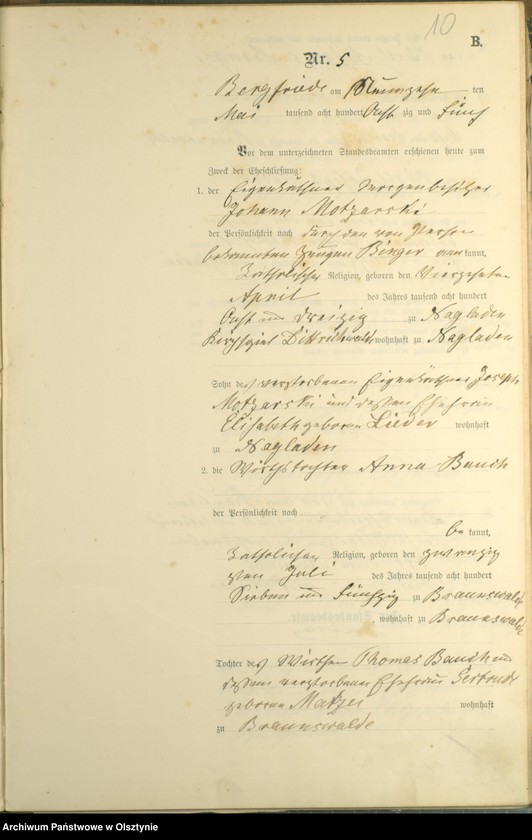 10
B.
Nr. 5
Bergfriede am Neunzehn ten
Mai tausend acht hundert Acht zig und fünf
Vor dem unterzeichneten Standesbeamten erschienen heute zum
Zweck der Eheschließung:
1. der Eigenkäthner
Johann Motzarski
der Persönlichkeit nach durch den von Person
bekannten Zeugen Binger aner kannt,
katholischer Religion, geboren den Vierzehnten
April des Jahres tausend acht hundert
Acht und dreizig zu Nagladen
Kirchspiel Dittrichswalde wohnhaft zu Nagladen
Sohn des verstorbenen Eigenkäthner Joseph
Motzarski und dessen Ehefrau
Elisabeth geboren Lieder wohnhaft
zu Nagladen
2. die Wirthstochter Anna Bauch
der Persönlichkeit nach
be kannt,
katholischer Religion, geboren den zwanzig
sten Juli des Jahres tausend acht hundert
Sieben und fünfzig zu Braunswalde
, wohnhaft zu Braunswalde
Tochter des Wirthen Thomas Bauch und
dessen verstorbenen Ehefrau Gertrude
geboren Matzei wohnhaft
zu Braunswalde
Archiwum Państwowe w Olsztynie